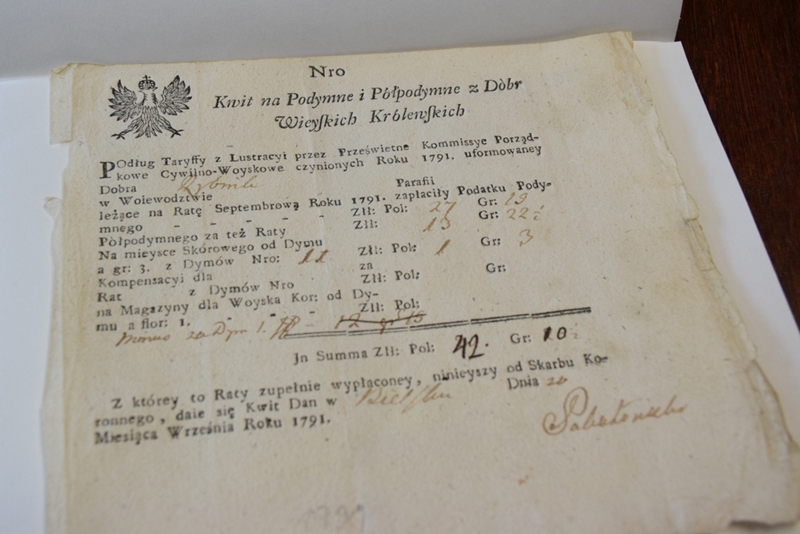 Nro
Kwit na Podymne i Półpodymne z Dòbr
Wieyſkich Królewſkich
POdług Taryffy z Lustracyi przez Prześwietne Kommissye Porząd-
kowe Cywilno-Woyskowe czynionych Roku 1791. uformowaney
Dobra
w Woiewodztwie Parafii
leżące na Ratę Septembrową Roku 1791. zapłaciły Podatku Pody-
mnego - - - - - Złł: Pol: 27 Gr: 15
Półpodymnego za też Raty Złł: 13 Gr: 22
Na mieysce Skórowego od Dymu
a gr: 3. z Dymów Nro: 11 Złł: Pol: 1 Gr: 3
Kompensacyi dla za
Rat z Dymów Nro Złł: Pol: Gr:
na Magazyny dla Woyska Kor: od Dy-
mu a flor: 1. - - - Złł: Pol:
Jn Summa Złł: Pol: 42. Gr: 10
Z którey to Raty zupełnie wypłaconey, ninieyszy od Skarbu Ko-
ronnego, daie się Kwit Dan w Dnia 20
Miesiąca Września Roku 1791.
1791